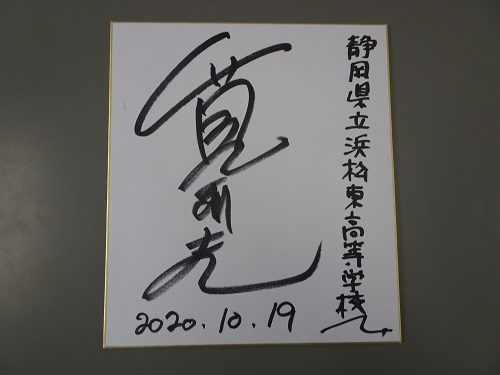 静岡県立浜松東高等学校へ
2020.10.19